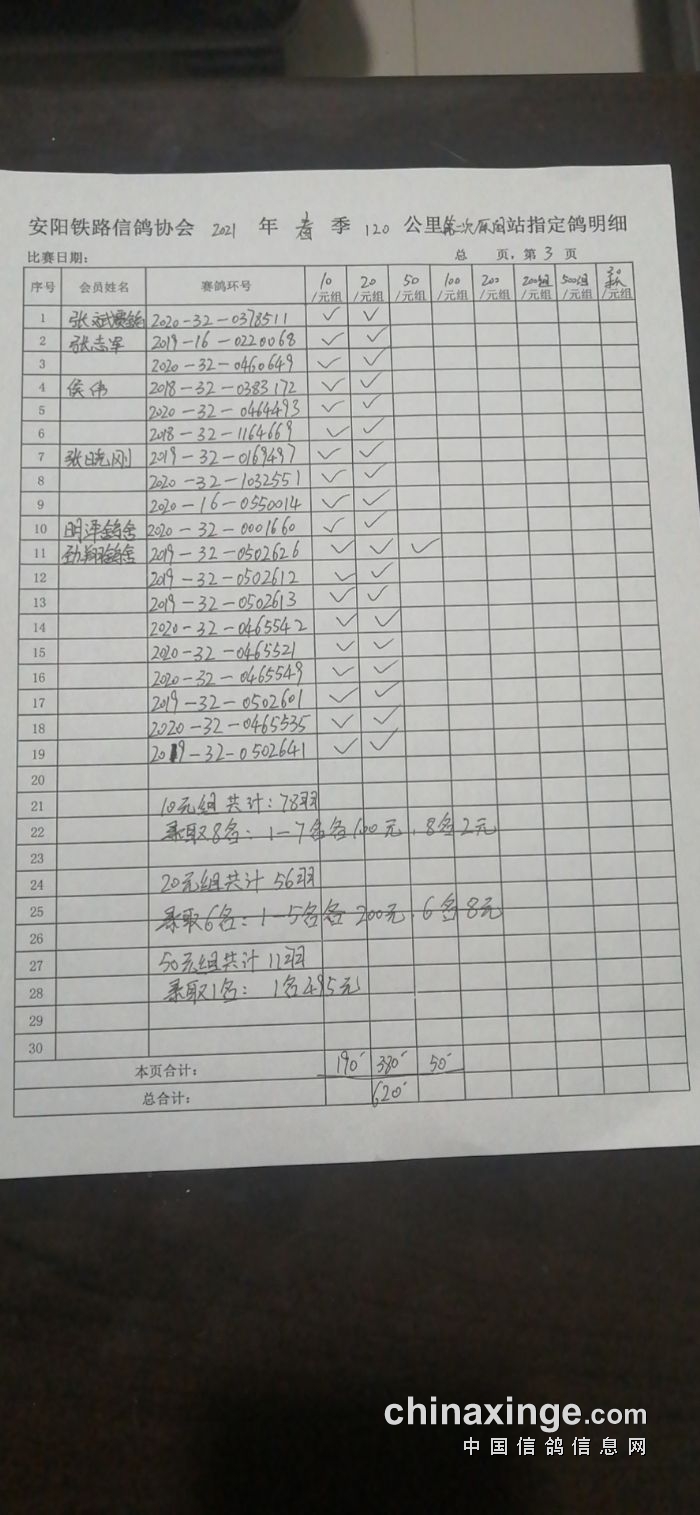 安阳铁路信鸽协会 2021 年 春 季 120 公里第二次原阳站指定鸽明细
比赛日期： 总 页，第 3 页
序号 会员姓名 赛鸽环号 10/元组 20/元组 50/元组 100/元组 200/元组 200组/元组 500组/元组 /元组
1 张斌 2020-32-0378511 ✓ ✓
2 张志军 2019-16-0220068 ✓ ✓
3 2020-32-0460649 ✓ ✓
4 侯伟 2018-32-0383172 ✓ ✓
5 2020-32-0464493 ✓ ✓
6 2018-32-1164669 ✓ ✓
7 张晓刚 2019-32-0169497 ✓ ✓
8 2020-32-1032551 ✓ ✓
9 2020-16-0550014 ✓ ✓
10 明泽鸽舍 2020-32-0001660 ✓ ✓
11 劲翔鸽舍 2019-32-0502626 ✓ ✓ ✓
12 2019-32-0502612 ✓ ✓
13 2019-32-0502613 ✓ ✓
14 2020-32-0465542 ✓ ✓
15 2020-32-0465521 ✓ ✓
16 2020-32-0465549 ✓ ✓
17 2019-32-0502601 ✓ ✓
18 2020-32-0465535 ✓ ✓
19 2019-32-0502641 ✓ ✓
20
21 10元组共计：78羽
22 录取8名：1-7名各100元，8名2元
23
24 20元组共计 56羽
25 录取6名：1-5名各200元，6名8元
26
27 50元组共计 11羽
28 录取1名： 1名495元
29
30
本页合计： 190 380 50
总合计： 620
chinaxinge.com
中国信鸽信息网